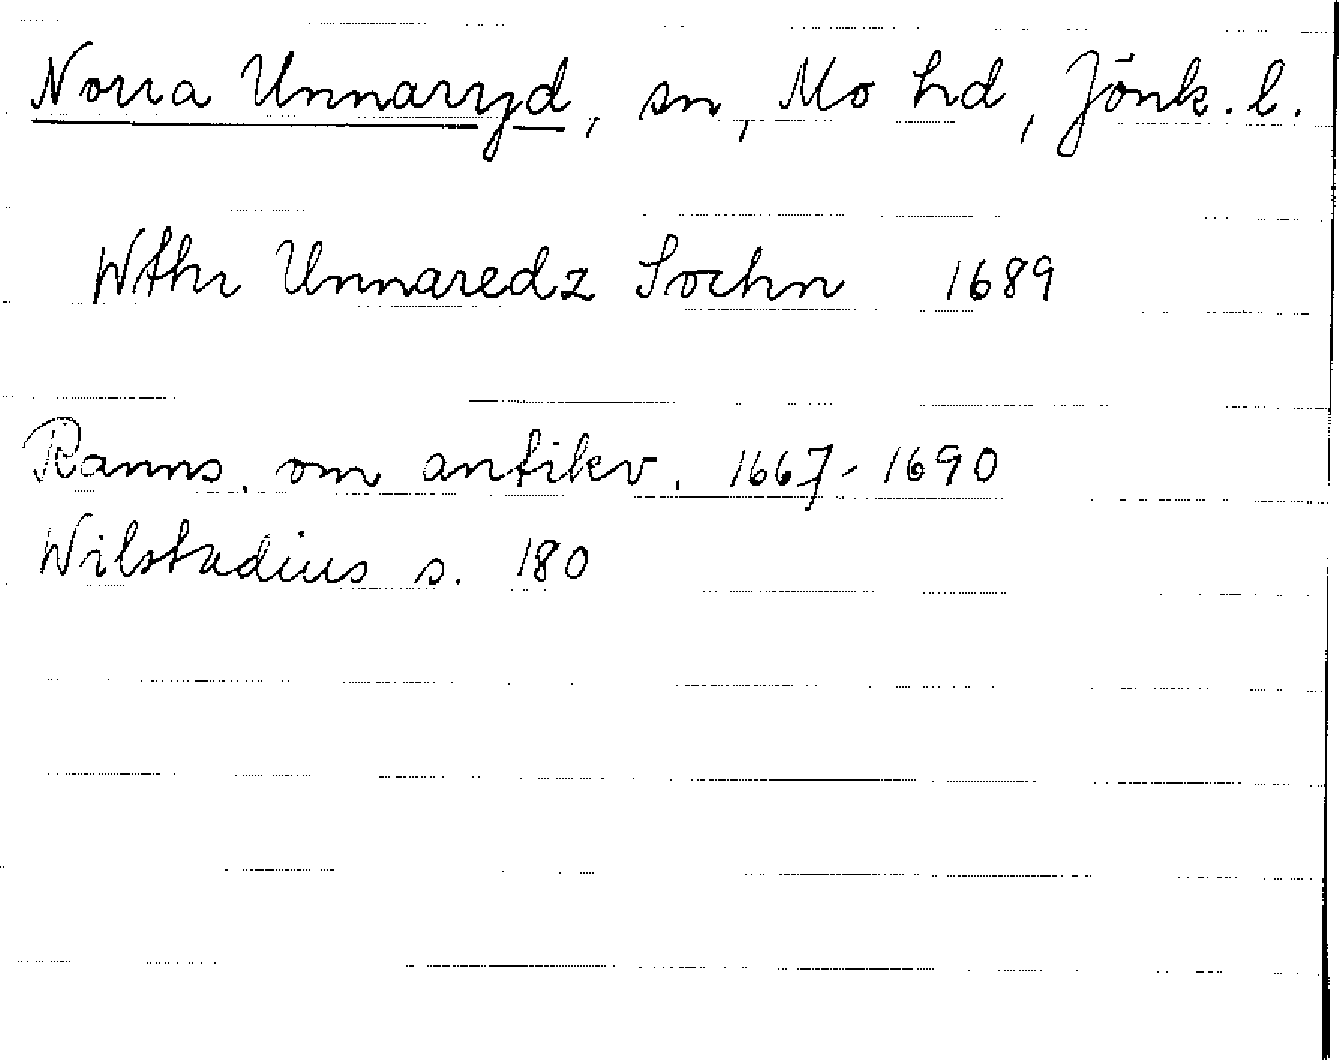 Norra Unnaryd, sn, Mo hd, Jönk. l.
Wthr Unnaredz Sochn 1689
Ranns. om antikv. 1667-1690
Wilstadius s. 180